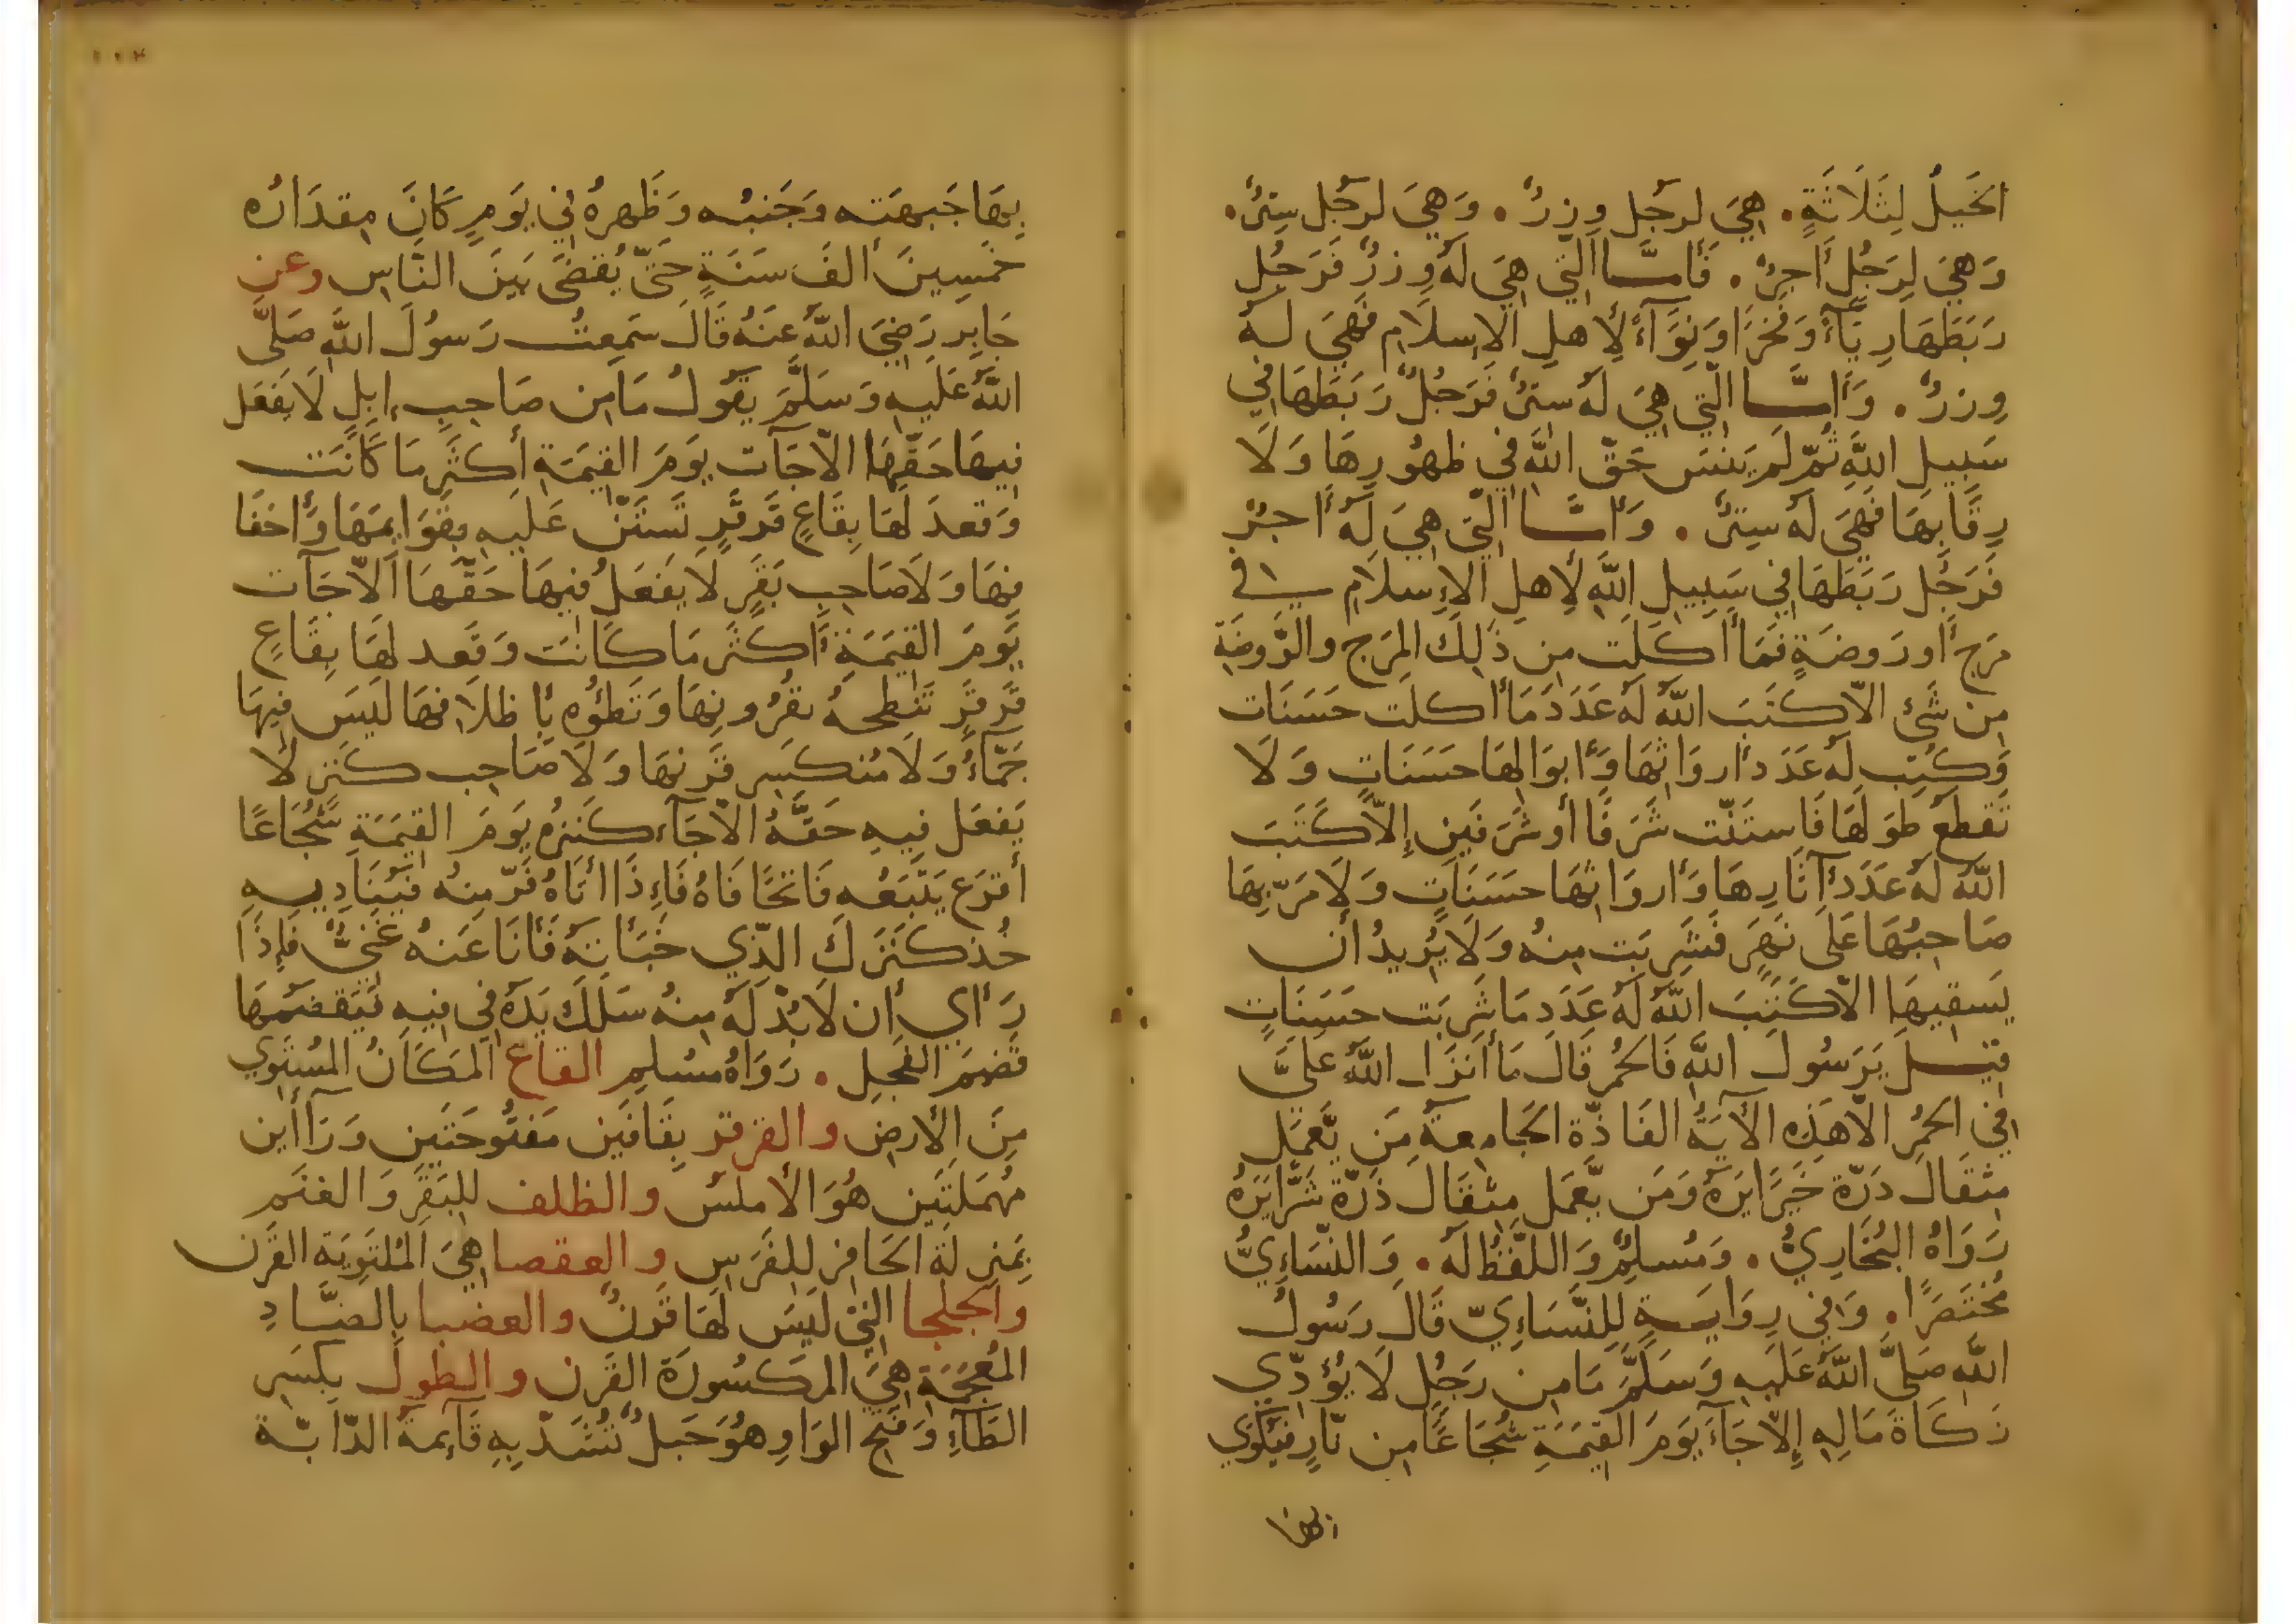 الخَيلُ لِثَلَاثَةٍ . هِيَ لرجُل وِزرٌ . وَهِيَ لرجُل سِترٌ .
وَهِيَ لِرَجُلٍ أَجرٌ . فَأَمَّا الَّتي هِيَ لَهُ وِزرٌ فَرَجُل
رَبَطَهَا رِيَآءً وَفَخرًا وَنِوَآءً لِأَهلِ الإسلَام فَهِيَ لَهُ
وِزرٌ . وَأَمَّا الَّتي هِيَ لَهُ سِترٌ فَرَجُلٌ رَبَطَهَا فِي
سَبِيلِ اللَّهِ ثُمّ لَم يَنسَ حَقّ اللَّهِ فِي ظهُورِهَا وَلَا
رِقَابِهَا فَهِيَ لَهُ سِترٌ . وَأَمَّا الَّتي هِيَ لَهُ أَجرٌ
فَرَجُل رَبَطَهَا فِي سَبِيلِ اللَّهِ لِأَهلِ الإِسلَامِ في
مَرجٍ أَو رَوضَةٍ فَمَا أَكَلَت مِن ذَلِكَ المَرج والرَّوضَةِ
مِن شَئ الّا كَتَبَ اللَّهُ لَهُ عَدَدَ مَا أَكلَت حَسَنَات
وَكُتِب لَهُ عَدَدَ أَروَاثِهَا وَأَبوَالِهَا حَسَنَاتٍ وَلَا
تَقطَعُ طِوَلَهَا فَاستَنّت شَرَفًا أَو شَرَفَينِ إِلّا كَتَبَ
اللَّهُ لَهُ عَدَدَ آثَارِهَا وَأَروَاثِهَا حسَنَاتٍ وَلَا مَرّ بِهَا
صَاحِبُهَا عَلَى نَهَرٍ فَشَرِبَت مِنهُ وَلَا يُرِيدُ أَن
يَسقِيهَا الّا كَتَبَ اللَّهُ لَهُ عَدَدَ مَا شَرِبَت حَسَنَاتٍ
قِيلَ يَرَسُولَ اللَّهِ فَالحُمُر قَالَ مَا أَنزَل اللَّهُ عَلَيَّ
فِي الحُمُرِ الّا هَذِه الآيَةُ الفَاذّة الجَامِعَة مَن يَّعمَل
مِثقَالَ ذَرّة خَيرًا يَرَهُ وَمَن يَّعمَل مِثقَالَ ذَرّة شَرًّا يَرَهُ
رَوَاهُ البُخَارِيُّ . وَمُسلِمٌ وَاللَّفظُ لَهُ . وَالنَّسَاءِيُّ
مُختَصَرًا . وَفِي رِوَايَةٍ لِلنَّسَاءِيّ قَالَ رَسُولُ
اللَّهِ صَلَّى اللَّهُ عَلَيهِ وَسَلَّمَ مَا مِن رَجُلٍ لَا يُؤَدّي
زَكَاةَ مَالِهِ إِلّا جَآءَ يَومَ القِيَمَةِ شُجَاعًا مِن نّارٍ فَيُكوَي
بِهَا
بِهَا جَبهَته وَجَنبُه وَظَهرهُ فِي يَومٍ كَانَ مِقدَارُه
خَمسِينَ أَلفَ سَنَةٍ حَتّى يُقضَى بَينَ النَّاسِ وعن
جَابِر رَضِيَ اللَّهُ عَنهُ قَالَ سَمِعتُ رَسُولَ اللَّهِ صَلَّى
اللَّهُ عَلَيهِ وَسَلَّمَ يَقُولُ مَا مِن صَاحِبِ إِبِلٍ لَا يَفعَل
فِيهَا حَقَّهَا الّا جَآت يَومَ القِيَمَةِ أَكثَر مَا كَانَت
وَقعدَ لَهَا بِقَاعٍ قَرقَرٍ تَستَنّ عَلَيهِ بِقَوَايِمَهَا وَأَخفَا
فِهَا وَلَا صَاحِبِ بَقَرٍ لَا يَفعَلُ فِيهَا حَقّهَا الّا جَآت
يَومَ القِيَمَةِ أَكثَر مَا كَانَت وَقَعد لَهَا بِقَاعٍ
قَرقَرٍ تَنطِحهُ بقُرُونِهَا وَتَطَؤُه بِأَظلَافهَا لَيسَ فِيهَا
جَمّاءُ وَلَا مُنكَسِر قَرنهَا وَلَا صَاحِب كَنزٍ لَا
يَفعَل فِيهِ حَقَّهُ الّا جَآءَ كَنزهُ يَومَ القِيَمَةِ شُجَاعًا
أَقرَع يَتبَعُه فَاتحًا فَاهُ فَإِذَا أَتَاهُ فَرّ مِنهُ فَيُنَادِيهِ
خُذ كَنزَكَ الَّذِي خَبَأتَهُ فَأَنَا عَنهُ غَنِيٌّ فَإِذَا
رَأَي أَن لَا بُدّ لَهُ مِنهُ سَلَكَ يَدَهُ فِي فِيهِ فَيَقضَمُهَا
قَضمَ الفَحِل . رَوَاهُ مُسلِم القاع المَكَانُ المُستَوِي
مِنَ الأَرضِ والقرقر بِقَافَين مَفتُوحَتَين وَرَاأَين
مُهمَلَتَين هُوَ الأَملَسُ والظلف لِلبَقَرِ وَالغنَم
بِمَنزِلَة الحَافِر لِلفَرَسِ والعقصا هِيَ المُلتَوِيَة القَرن
والجلحا الَّتي لَيسَ لَهَا قَرنٌ والعضبا بِالضَّادِ
المُعجَمَةِ هِيَ المَكسُورَة القَرن والطول بِكَسرِ
الطَّآءِ وَفَتح الوَاوِ هُوَ حَبلٌ تُشَدّ بِهِ قَآيِمَة الدّآبّة